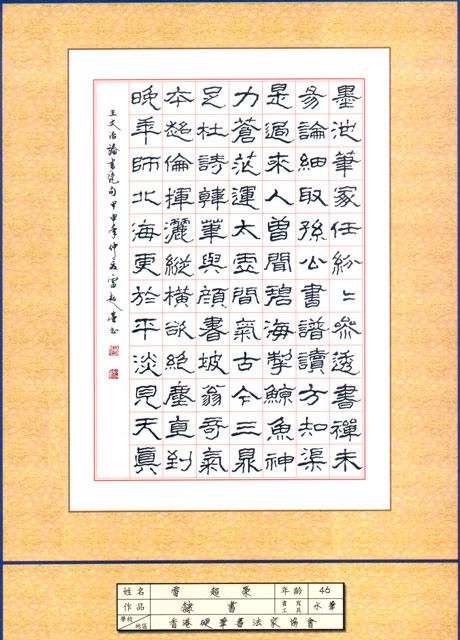 墨池筆冢任紛〻參透書禪未
易論細取孫公書譜讀方知渠
是過來人曾聞碧海掣鯨魚神
力蒼茫運太虛間氣古今三鼎
足杜詩韓筆與顏書坡翁奇氣
本超倫揮灑縱橫欲絕塵直到
晚年師北海更於平淡見天真
王文治論書絕句甲申年仲夏雷超榮書
姓名 雷超榮 年齡 46
作品 隸書 書寫工具 水筆
學校/地區 香港硬筆書法家協會